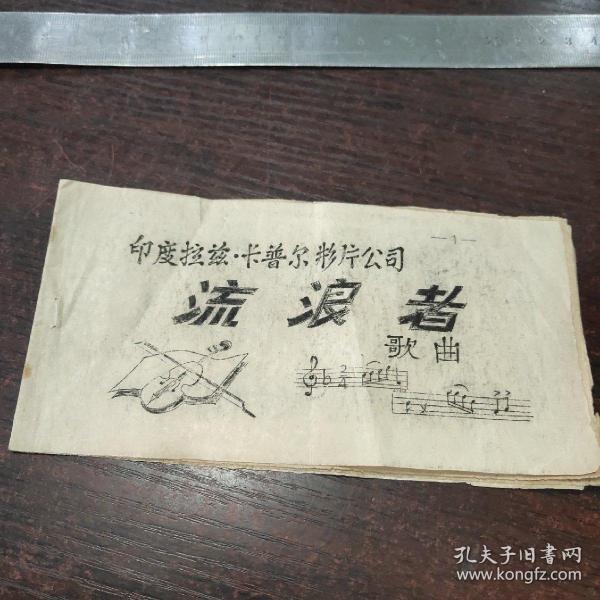 —1—
印度拉兹·卡普尔影片公司
流浪者
歌曲
孔夫子旧书网
www.kongfz.com